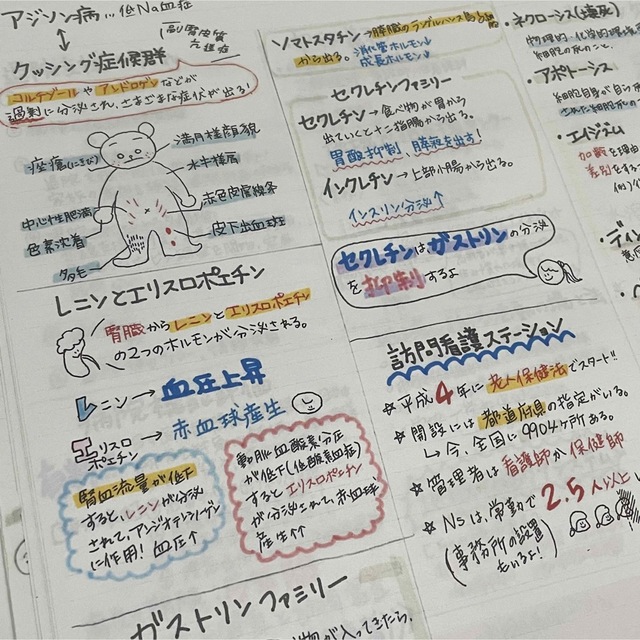 アジソン病…低Na血症
(副腎皮質
クッシング症候群
コルチゾールやアンドロゲンなどが
過剰に分泌され、さまざまな症状が出る!
満月様顔貌
痤瘡(にきび)
水牛様肩
赤色皮膚線条
中心性肥満
皮下出血斑
色素沈着
多毛
レニンとエリスロポエチン
腎臓からレニンとエリスロポエチン
の2つのホルモンが分泌される。
レニン→血圧上昇
エリスロポエチン→赤血球産生
腎血流量が低下
すると、レニンが分泌
されて、アンジオテンシノーゲン
に作用!血圧↑
動脈血酸素分圧
が低下(低酸素血症)
するとエリスロポエチン
が分泌されて、赤血球
産生↑
ガストリンファミリー
物が入ってきたら、
ソマトスタチン→膵臓のランゲルハンス島
から出る。消化管ホルモン↓
成長ホルモン↓
セクレチンファミリー
セクレチン→食べ物が胃から
出ていくと十二指腸から出る。
胃酸抑制、膵液を出す!
インクレチン→上部小腸から出る。
インスリン分泌↑
セクレチンはガストリンの分泌
を抑制するよ
訪問看護ステーション
☆平成4年に老人保健法でスタート!!
☆開設には都道府県の指定がいる。
↳今、全国に9904ヶ所ある。
☆管理者は看護師か保健師
☆Nsは、常勤で2.5人以上
(事務所の設置
もいるよ!)
・ネクローシス(壊死)
物理的、化学的
細胞死のこと。
・アポトーシス
細胞自身が
された細胞死
・エイジズム
加齢を理由
差別をする